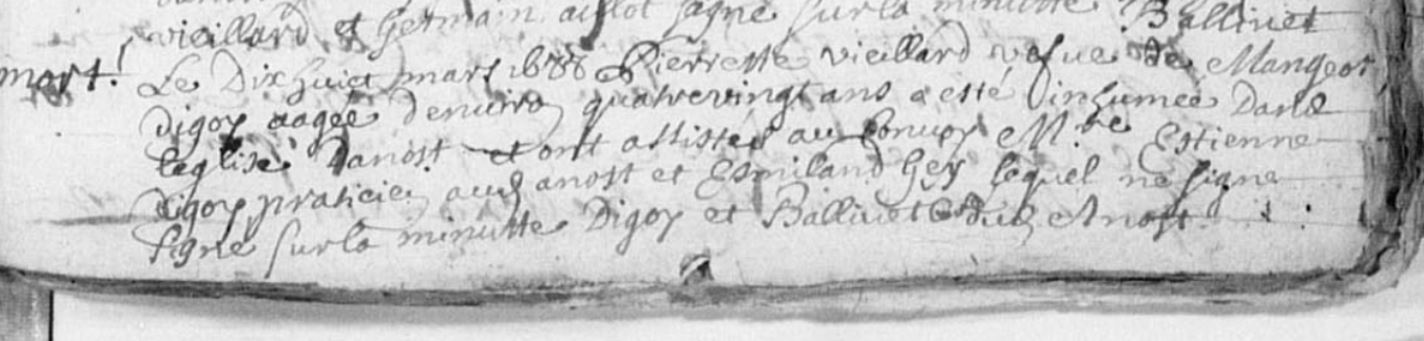 vieillard et Germain aussot signé sur la minutte Ballivet
mort. Le Dixhuict mars 1688 Pierrette vieillard vefue de Mangeot
Digoy aagée denuiron quatrevingt ans a esté inhumée Dans
leglise Danost et ont assistés au Convoy Mre Estienne
Digoy praticien aud anost et Esmiland Gey lequel ne signe
signé sur la minutte Digoy et Ballivet Anost